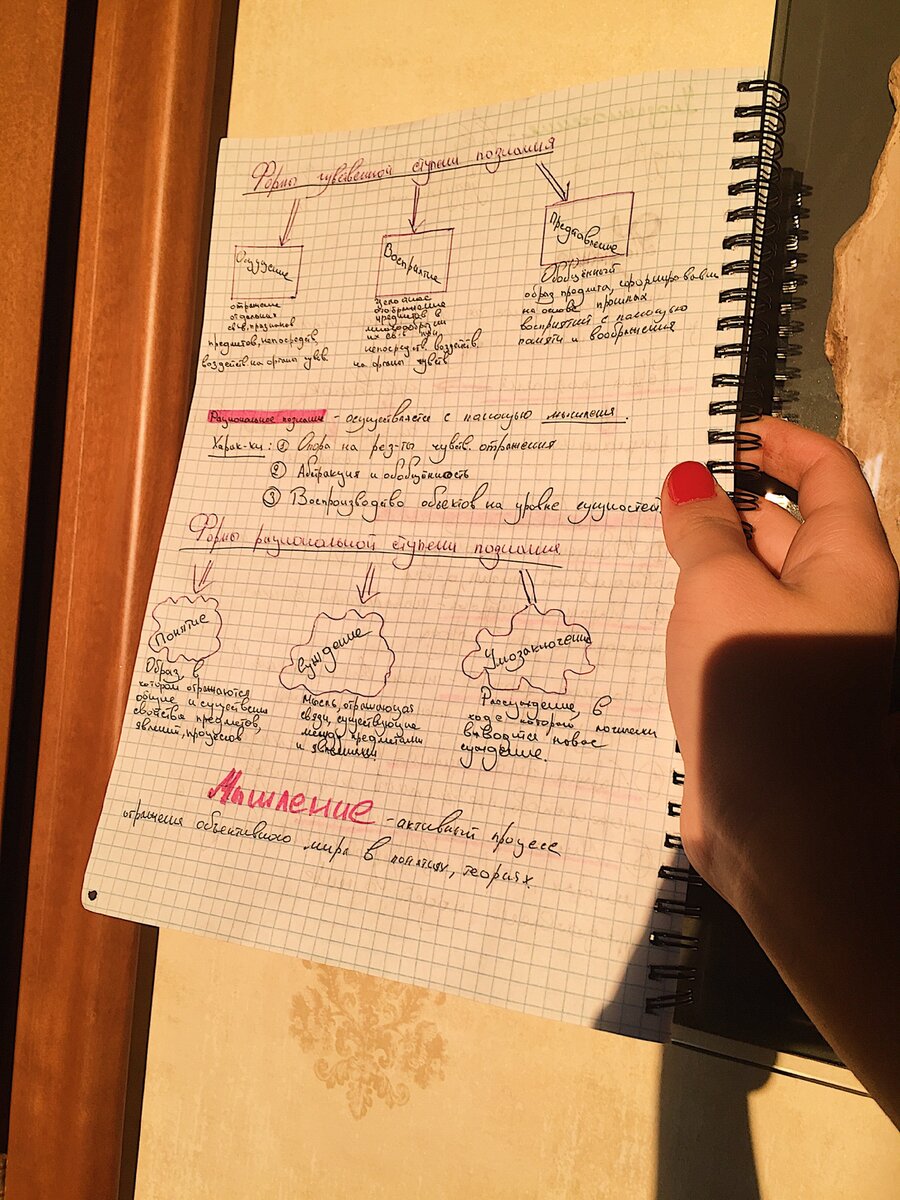 Формы чувственной ступени познания
Ощущение
отражение
отдельных
св-в, признаков
предметов, непосредств.
воздейств на органы чувств.
Восприятие
целостное
отображение
предметов в
многообразии
их св-в при
непосредств. воздейств.
на органы чувств
Представление
Обобщённый
образ предмета, сформировавш.
на основе прошлых
восприятий с помощью
памяти и воображения
Рациональное познание - осуществляется с помощью мышления.
Харак-ки: ① Опора на рез-ты чувств. отражения
② Абстракция и обобщённость
③ Воспроизводство объектов на уровне сущностей
Формы рациональной ступени познания
Понятие
Образ, в
котором отражаются
общие и существенн
свойства предметов,
явлений, процессов
Суждение
мысль, отражающая
связи, существующие
между предметами
и явлениями.
Умозаключение
Рассуждение, в
ходе которого логически
выводится новое
суждение.
Мышление - активный процесс
отражения объективного мира в понятиях, теориях.